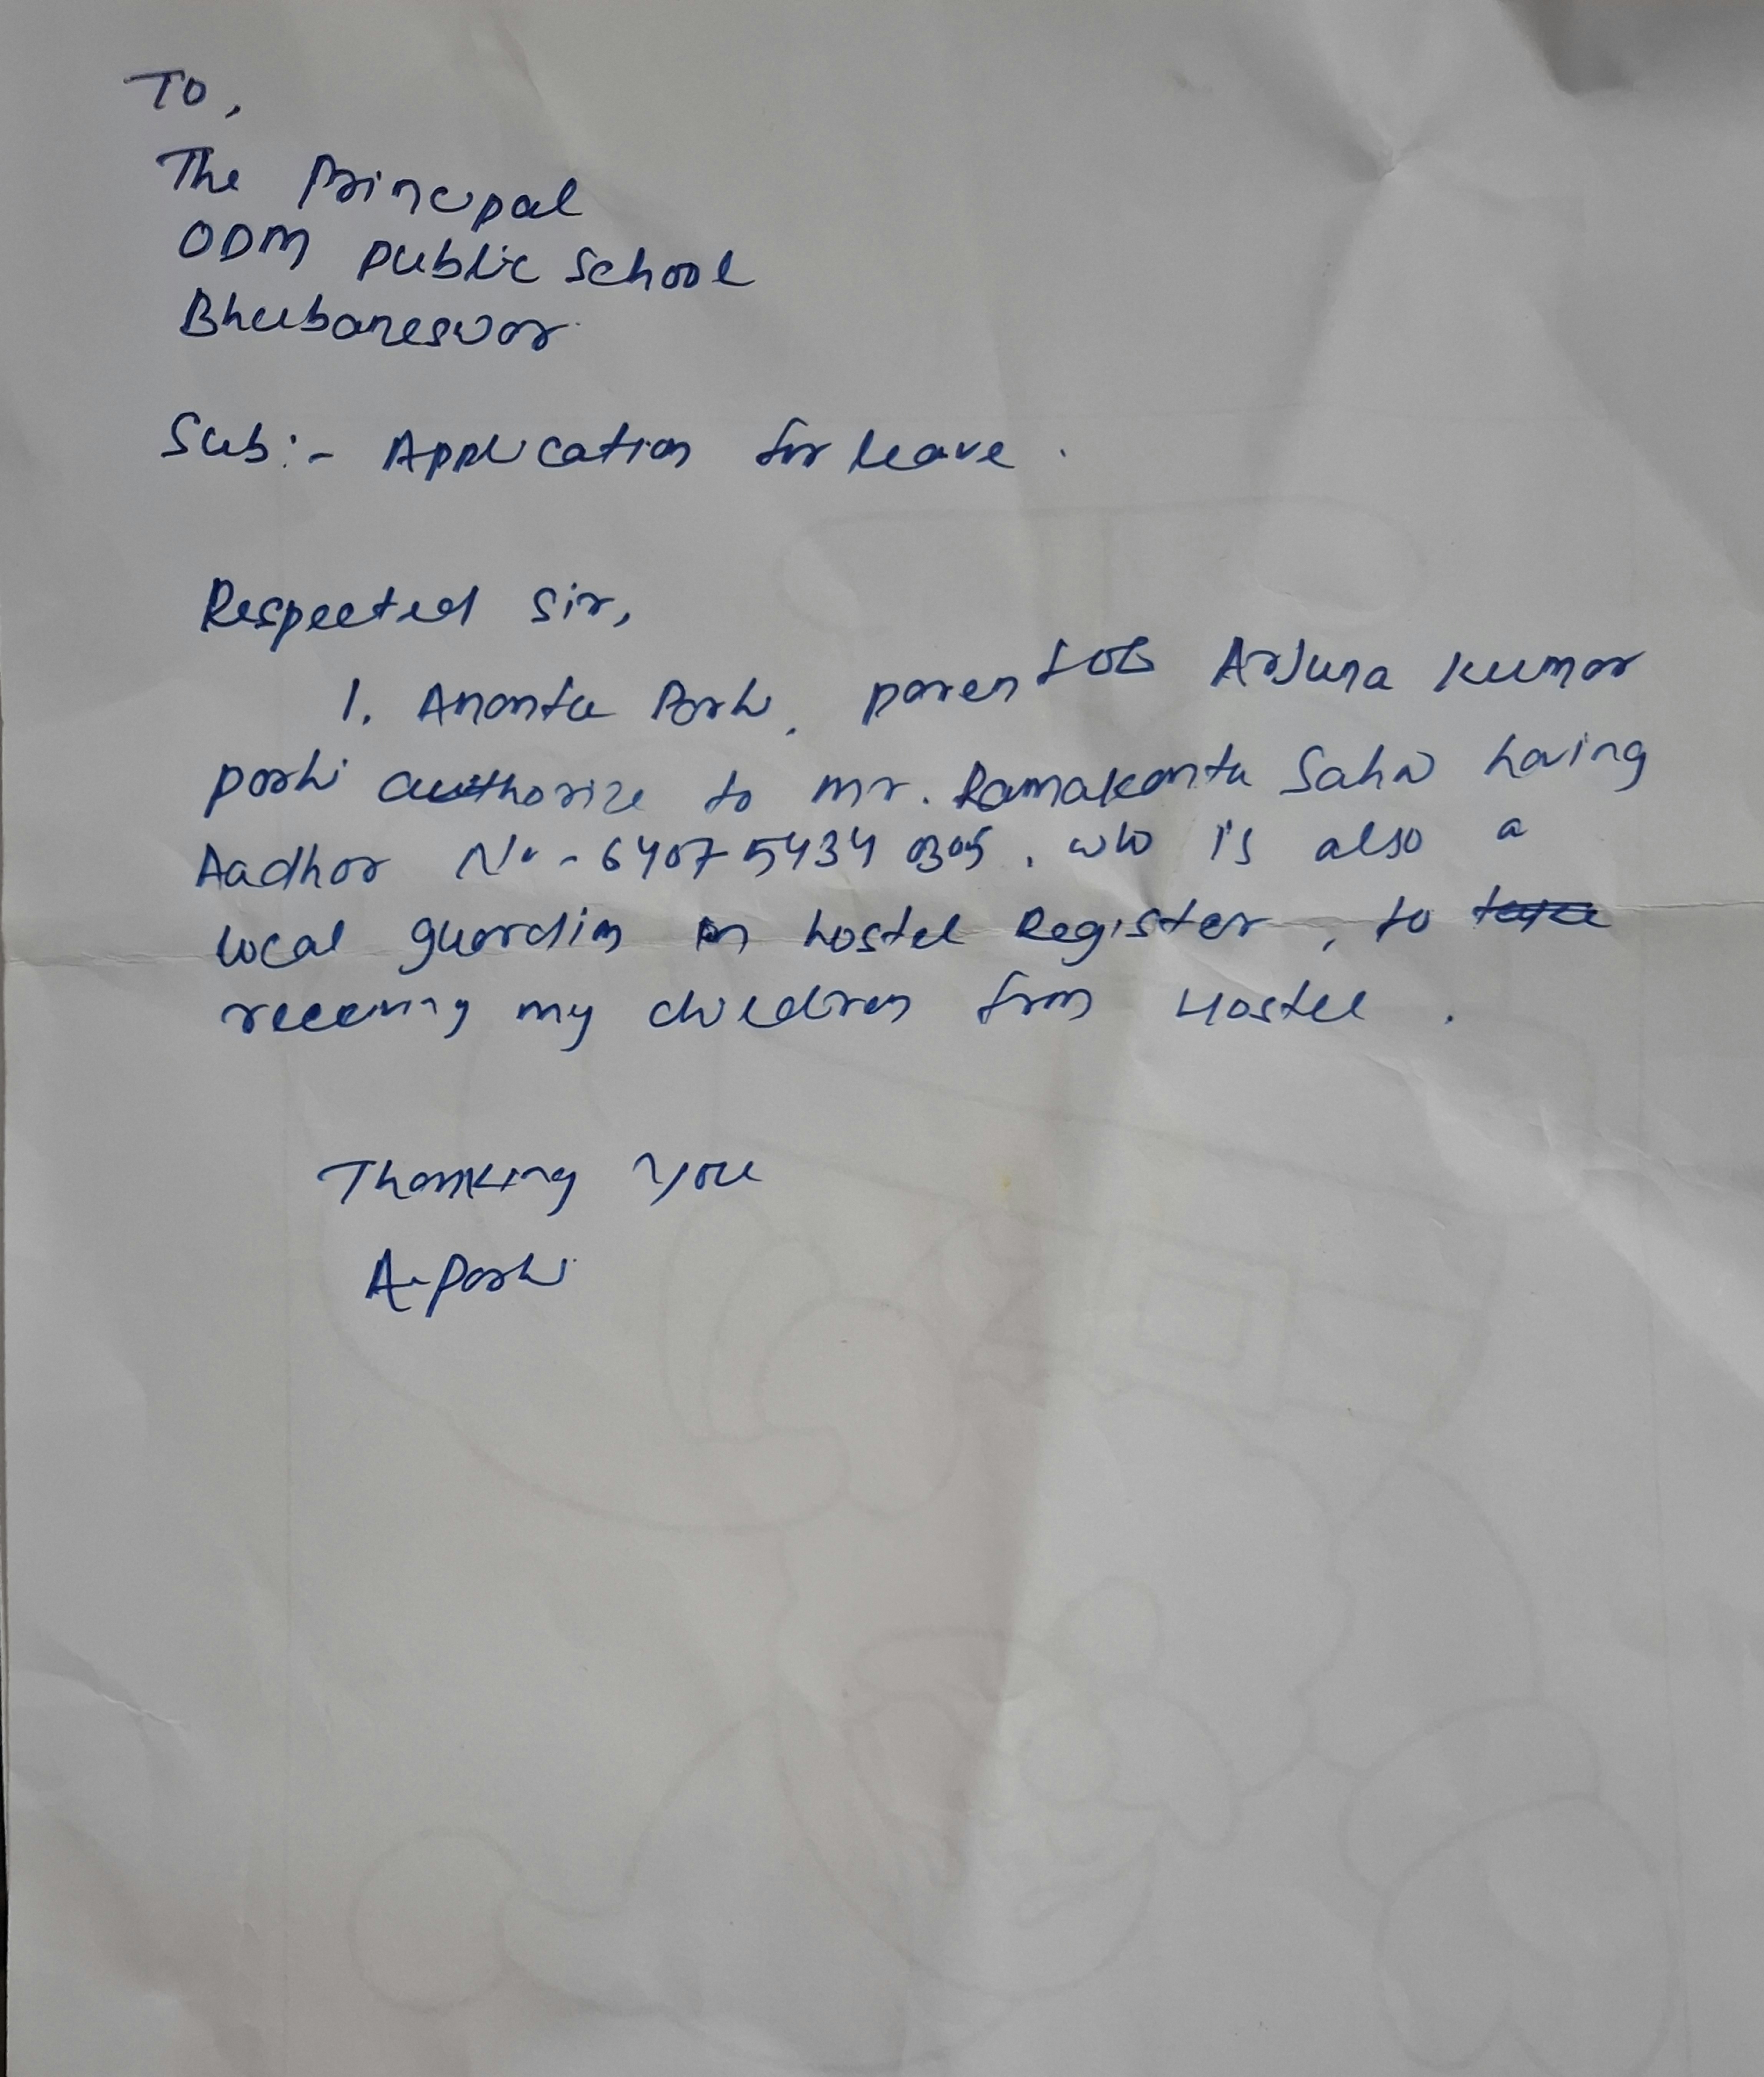 To,
The Principal
ODM Public School
Bhubaneswar
Sub:- Application for leave.
Respected Sir,
I, Ananta Parhi, parent of Arjuna Kumar
Parhi authorize to Mr. Ramakanta Sahu having
Aadhar No - 6407 5434 0305, who is also a
local guardian in hostel Register, to
receiving my children from Hostel.
Thanking You
A. Parhi